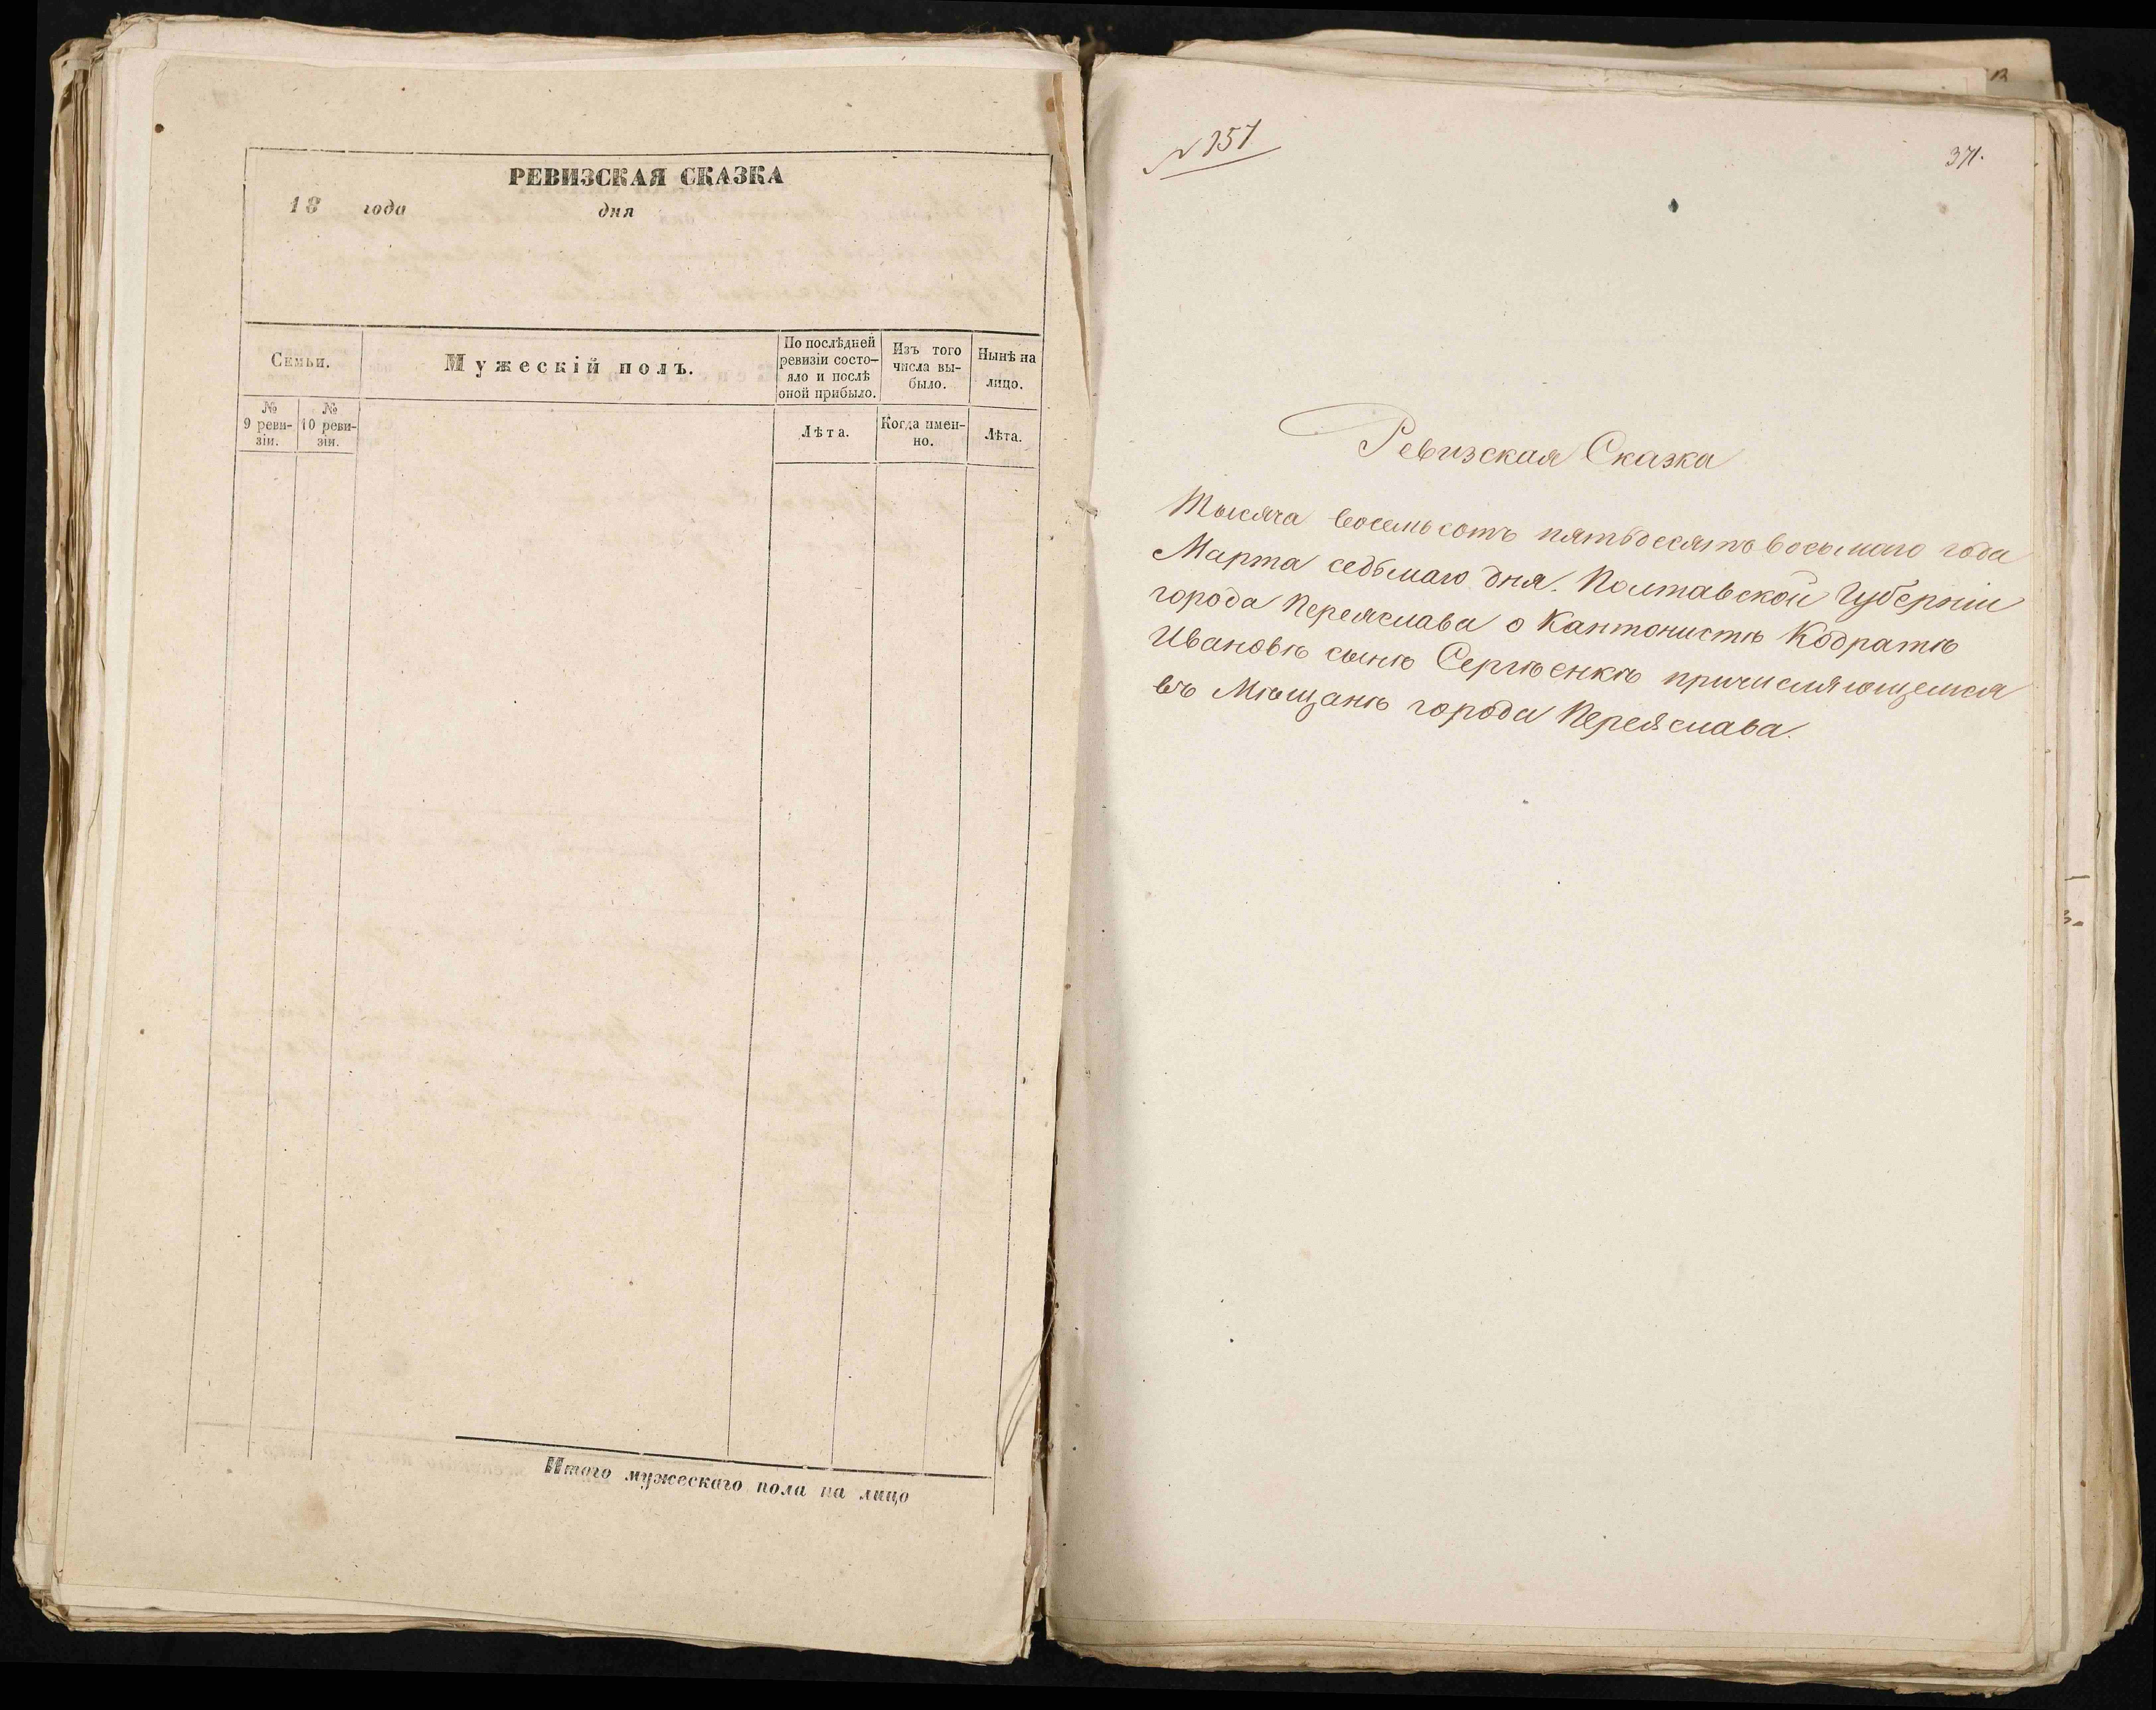 РЕВИЗСКАЯ СКАЗКА
18 года дня
Семьи.
Мужескій полъ.
По послѣдней ревизіи состо-
яло и послѣ
оной прибыло.
Изъ того
числа вы-
было.
Нынѣ на
лицо.
№
9 реви-
зіи.
№
10 реви-
зіи.
Лѣта.
Когда имен-
но.
Лѣта.
Итого мужескаго пола на лицо
371.
Ревизская Сказка
Тысяча восемьсотъ пятьдесятъ восьмаго года
Марта седьмаго дня. Полтавской Губерніи
города Переяслава о Кантонистѣ Кодратѣ
Ивановѣ сынѣ Сергѣенкѣ причисляющемся
въ Мѣщанѣ города Переяслава.